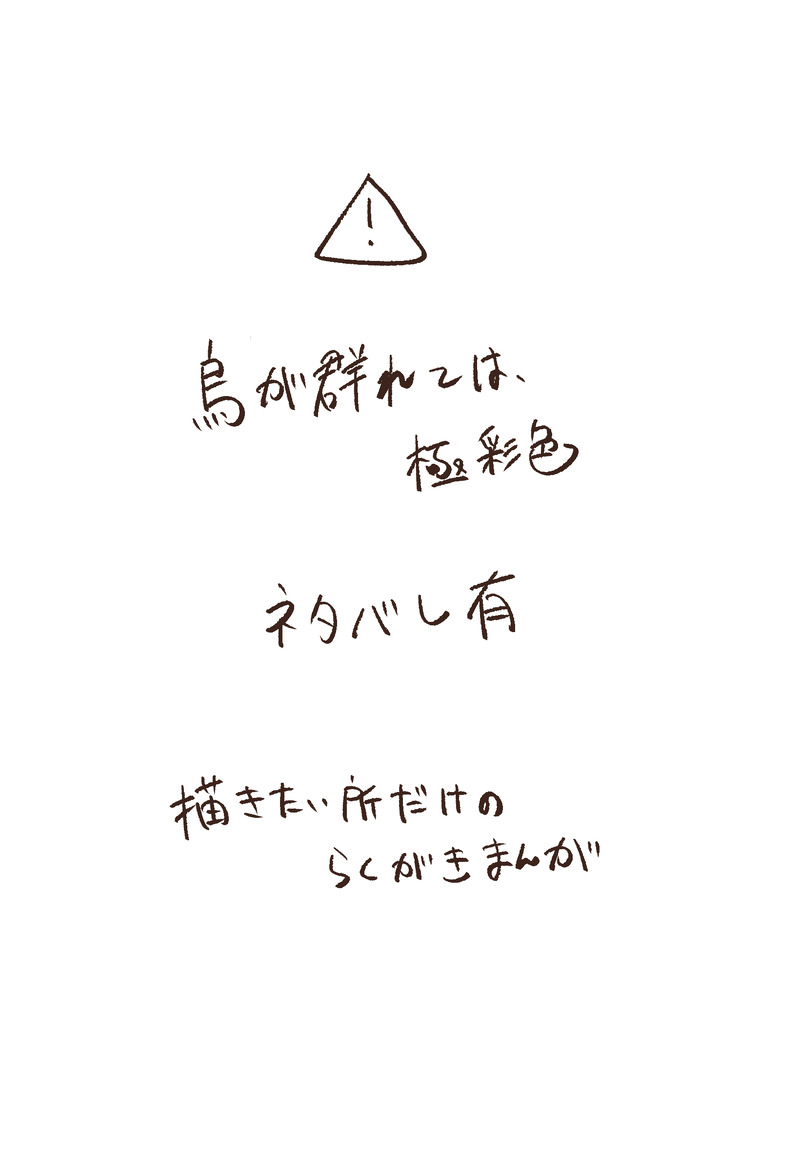 ！
烏が群れては、
極彩色
ネタバレ有
描きたい所だけの
らくがきまんが